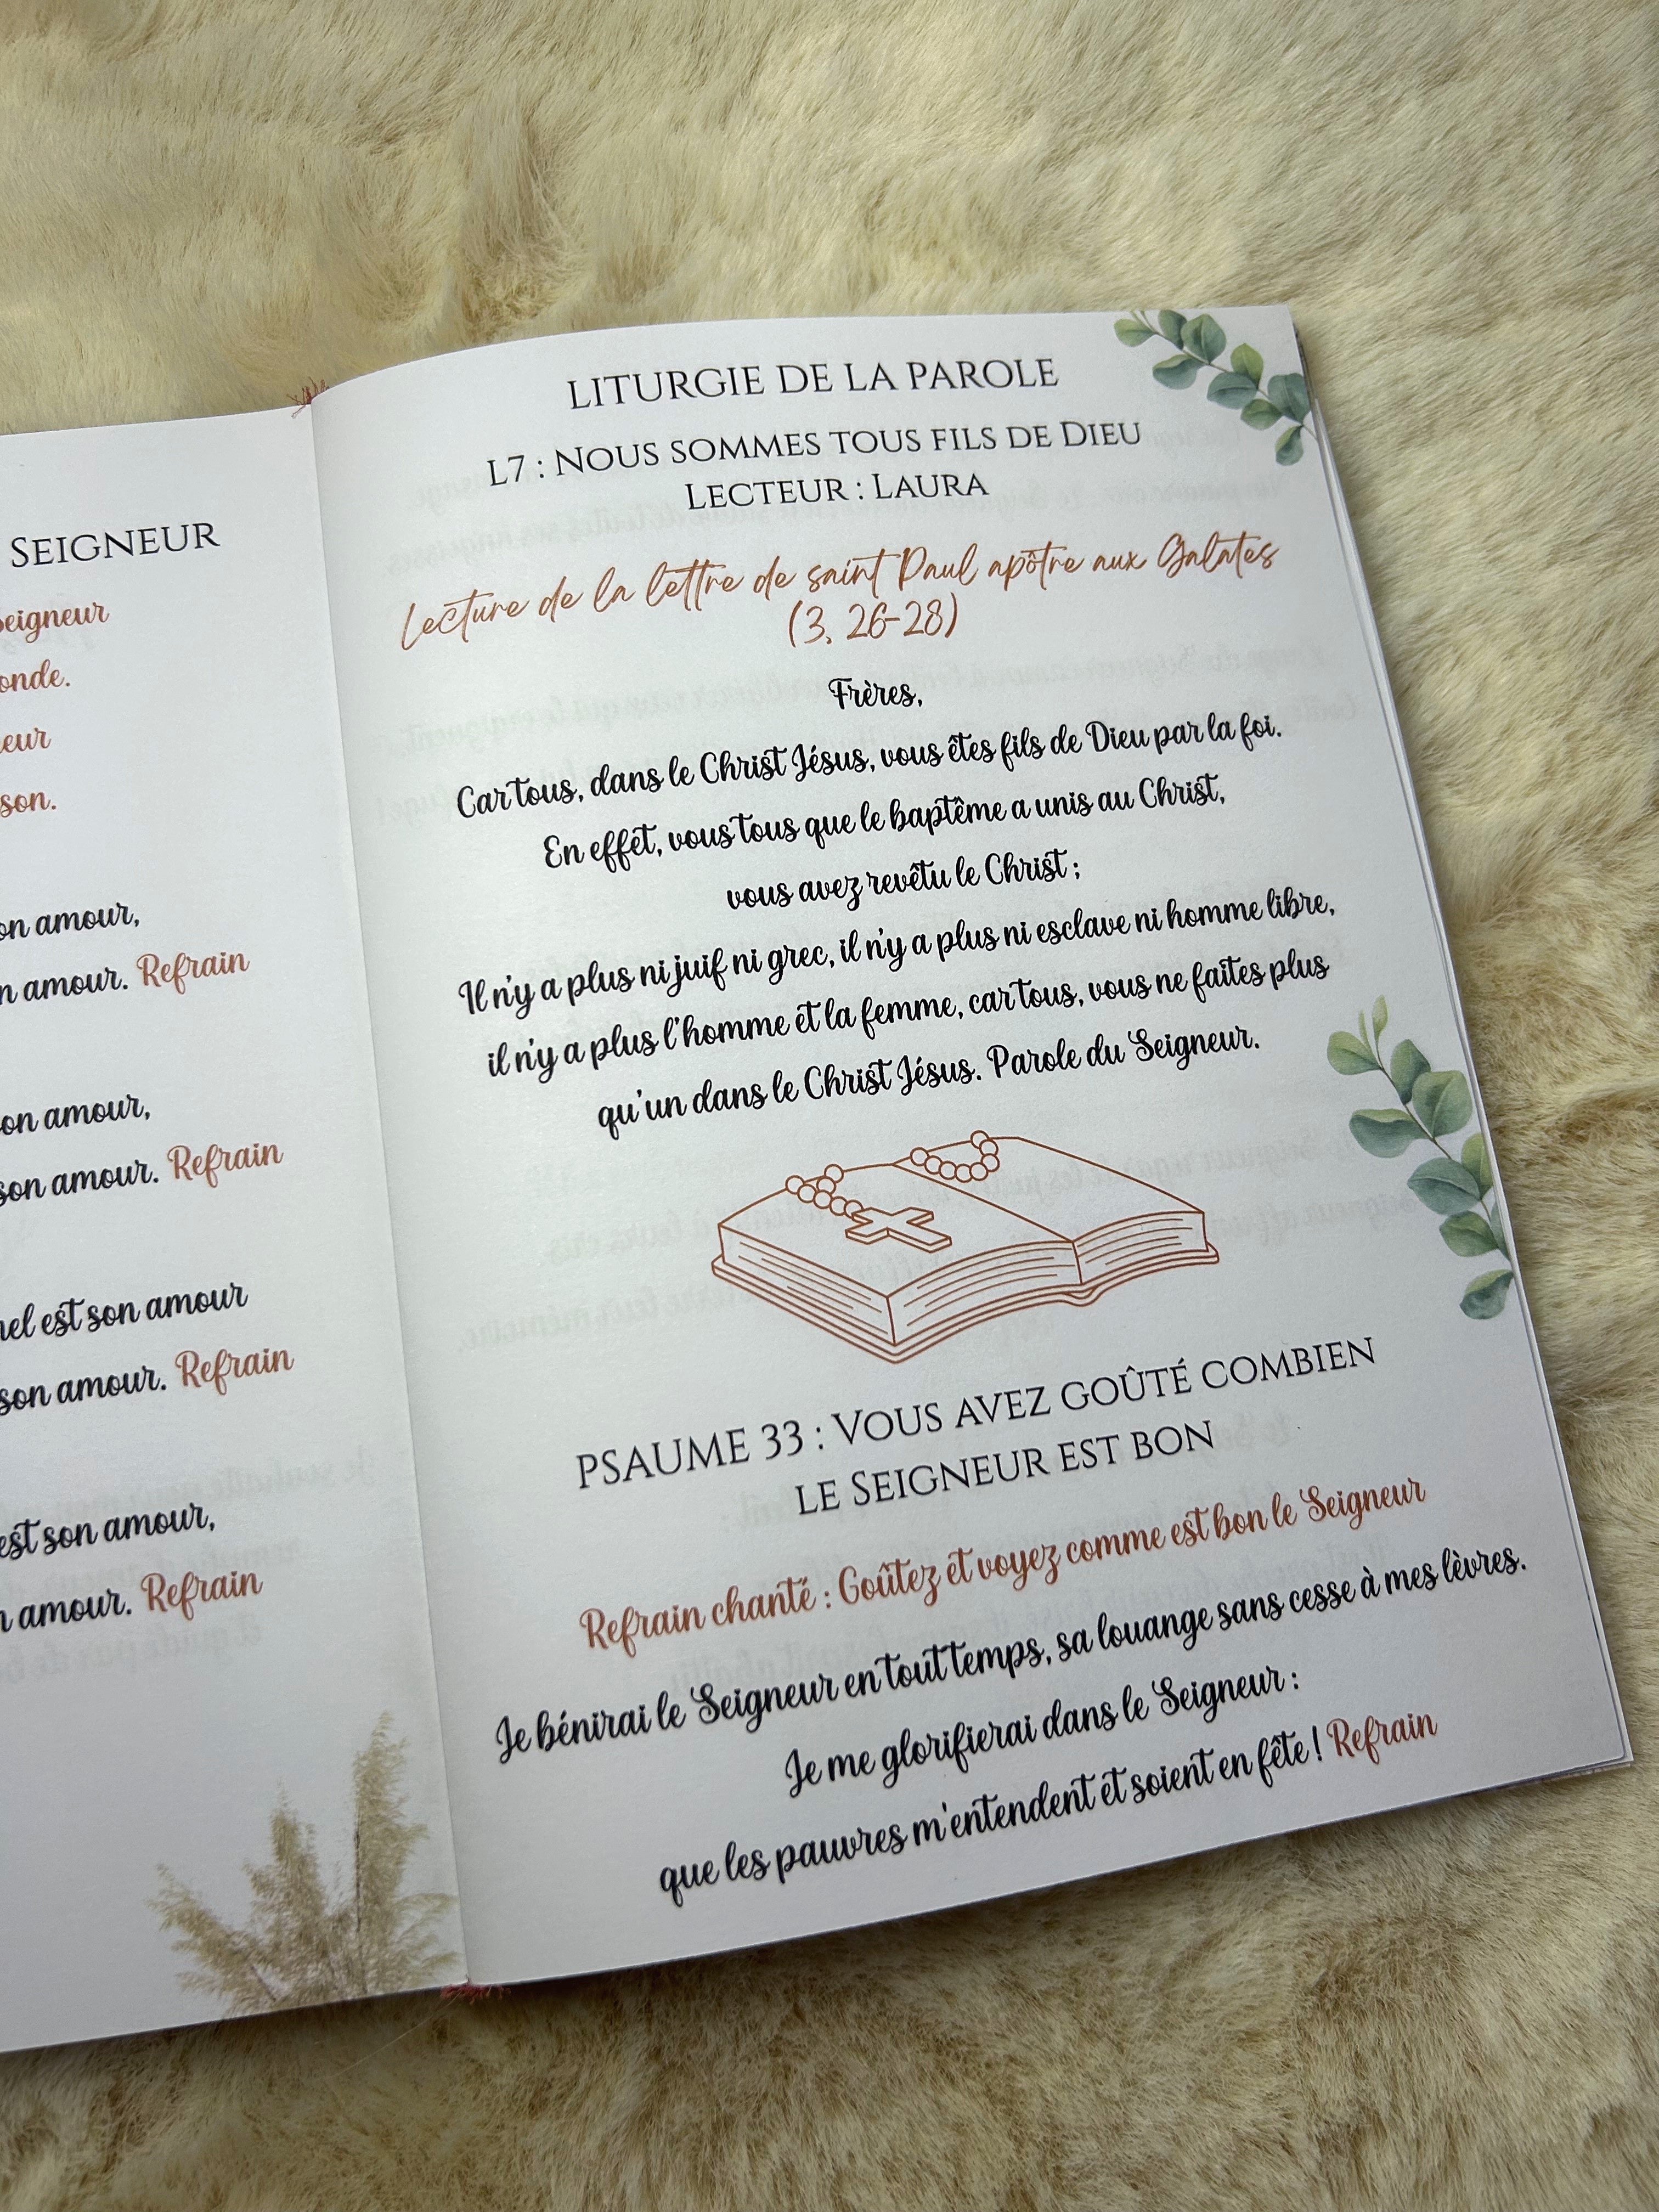 SEIGNEUR
Seigneur
onde.
eur
son.
on amour,
n amour. Refrain
on amour,
son amour. Refrain
nel est son amour
son amour. Refrain
est son amour,
n amour. Refrain
LITURGIE DE LA PAROLE
L7 : NOUS SOMMES TOUS FILS DE DIEU
LECTEUR : LAURA
Lecture de la lettre de saint Paul apôtre aux Galates
(3, 26-28)
Frères,
Car tous, dans le Christ Jésus, vous êtes fils de Dieu par la foi.
En effet, vous tous que le baptême a unis au Christ,
vous avez revêtu le Christ ;
Il n'y a plus ni juif ni grec, il n'y a plus ni esclave ni homme libre,
il n'y a plus l'homme et la femme, car tous, vous ne faites plus
qu'un dans le Christ Jésus. Parole du Seigneur.
PSAUME 33 : VOUS AVEZ GOÛTÉ COMBIEN
LE SEIGNEUR EST BON
Refrain chanté : Goûtez et voyez comme est bon le Seigneur
Je bénirai le Seigneur en tout temps, sa louange sans cesse à mes lèvres.
Je me glorifierai dans le Seigneur :
que les pauvres m'entendent et soient en fête ! Refrain